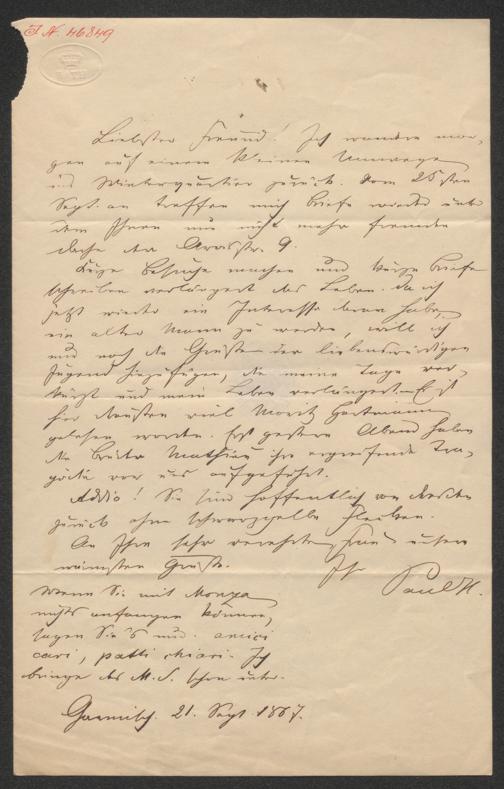 I.N. 46849
Liebster Freund! Ich wandre mor-
gen auf einem kleinen Umwege
ins Winterquartier zurück. Vom 25sten
Sept. an treffen mich Briefe wieder unter
dem Ihnen nun nicht mehr fremden
Dache der Arcisstr. 9.
Kurze Besuche machen und kurze Briefe
schreiben verlängert das Leben. Da ich
jetzt wieder ein Interesse daran habe,
ein alter Mann zu werden, will ich
nur noch die Grüße der liebenswürdigen
Jugend hinzufügen, die meine Tage ver-
kürzt und mein Leben verlängert. Es ist
hier draußen viel Moritz Hartmann
gelesen worden. Erst gestern Abend haben
die Brüder Mathieu ihre ergreifende Tra-
gödie vor uns aufgeführt.
Addio! Sie sind hoffentlich von
zurück ohne schwarzgelbe Flecken.
An Ihre sehr verehrte Frau unsere
wärmsten Grüße.
Ihr Paul H.
Wenn Sie mit Monza
nichts anfangen können,
sagen Sie's mir. amici
cari, patti chiari. Ich
bringe das M.S. schon unter.
Garmisch. 21. Sept. 1867.